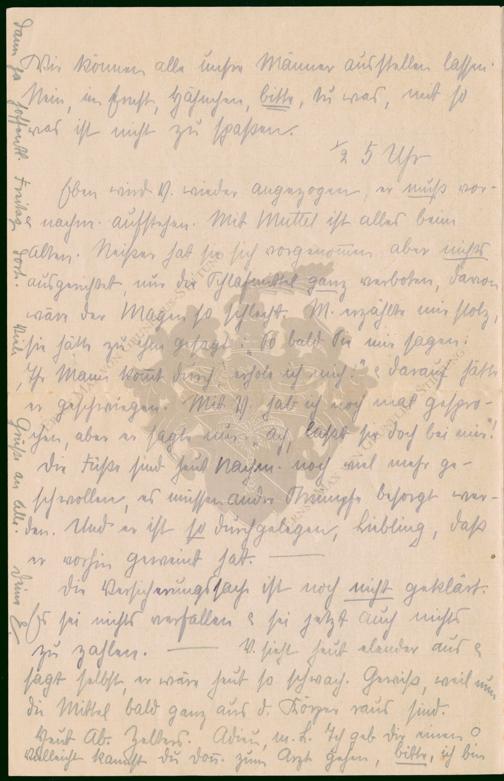 Wir können alle unsre Männer ausstellen lassen.
Nein, im Ernst, Hähnchen, bitte, tu was, mit so
was ist nicht zu spaßen.
1/2 5 Uhr
Eben wird V. wieder angezogen, er muß vor-
nachm. aufstehen. Mit Muttel ist alles beim
Alten. Neißer hat sie sich vorgenommen aber nichts
ausgerichtet, nur die Schlafmittel ganz verboten, davon
wäre der Magen so schlecht. M. erzählte mir stolz,
sie hätte zu ihm gesagt: "So bald Sie mir sagen:
"Ihr Mann kommt durch", erhole ich mich" & darauf hätte
er geschwiegen. Mit V. hab ich noch mal gespro-
chen, aber er sagte nur: ach, laßt sie doch bei mir!
Die Füße sind heut Nachm. noch viel mehr ge-
schwollen, es müssen andre Strümpfe besorgt wer-
den. Und er ist so durchgelegen, Liebling, daß
er vorhin geweint hat. —
Die Versicherungssache ist noch nicht geklärt.
Es sei nichts verfallen & sei jetzt auch nichts
zu zahlen. — V. sieht heut elender aus &
sagt selbst, er wäre heut so schwach. Gewiß, weil nun
die Mittel bald ganz aus d. Körper raus sind.
Heut Ab. Zellers. Adieu, m. L. Ich geb dir einen O
Vielleicht kannst du don. zum Arzt gehen, bitte, ich bin
dann ja hoffentl. Freitag dort. Viele Grüße an alle. Deine E.